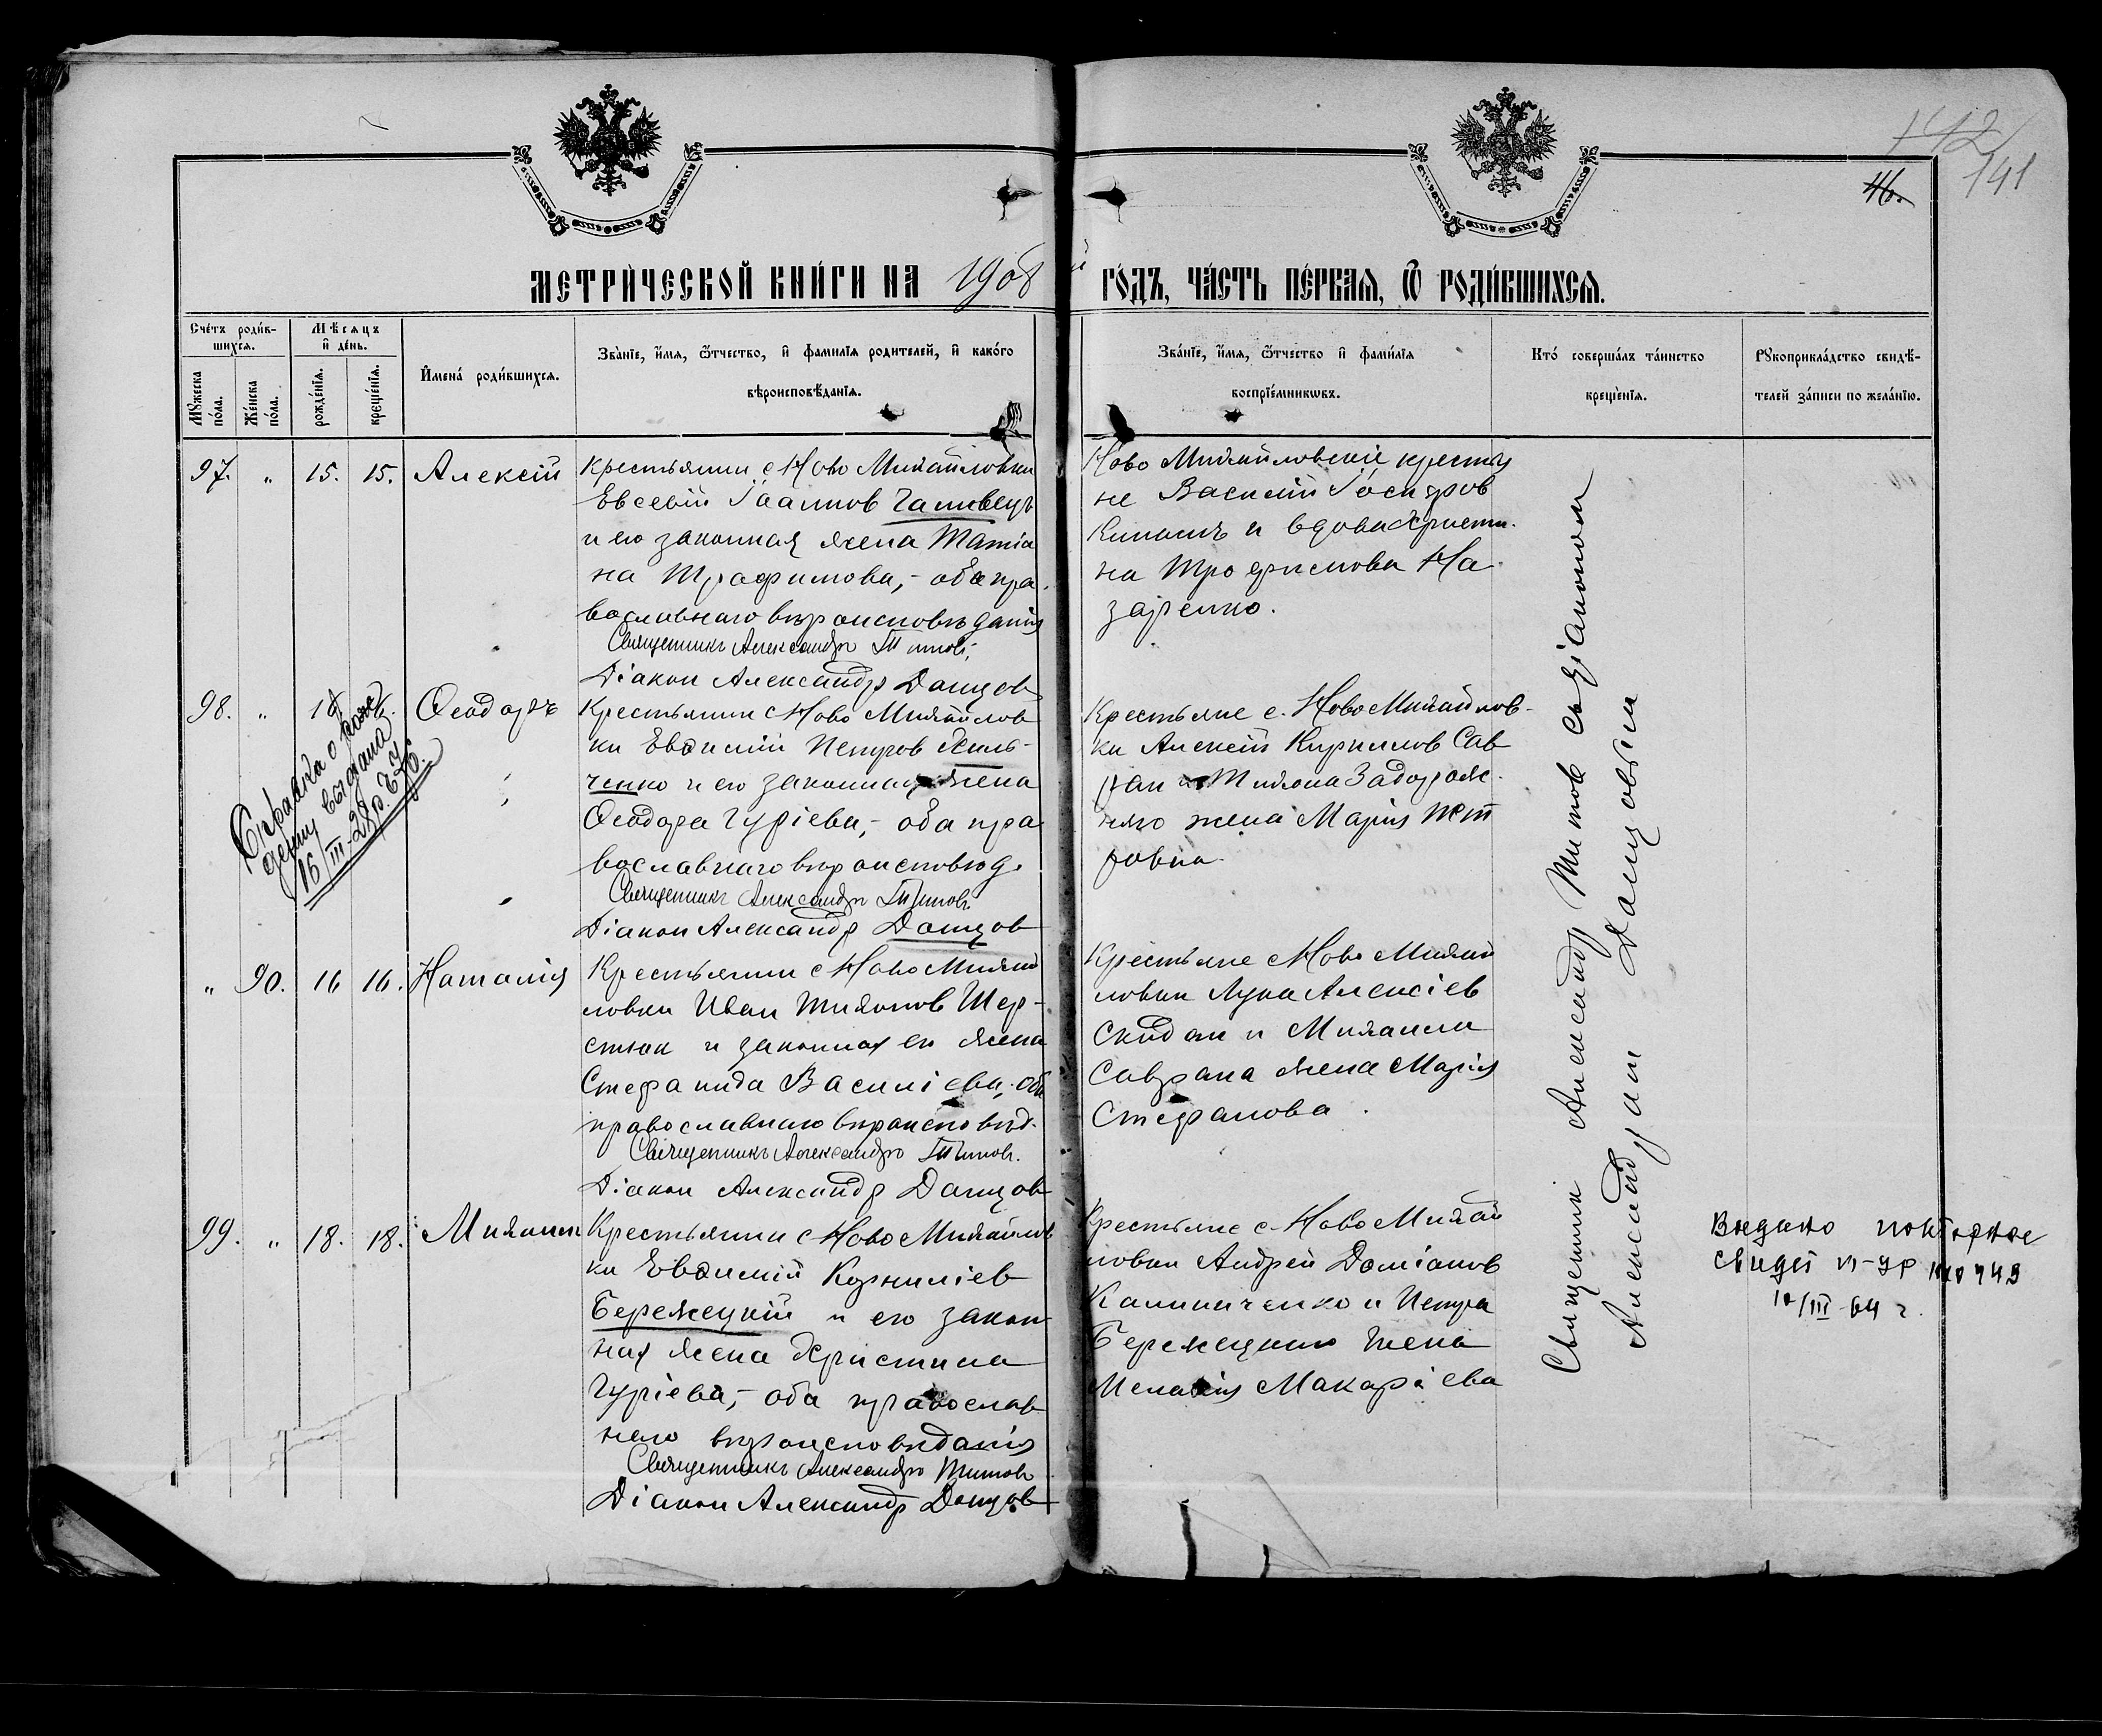 142
141
46.
МЕТРИ́ЧЕСКОЙ КНИ́ГИ НА 1908 й ГО́ДЪ, ЧА́СТЬ ПЕ́РВАЯ, Ѿ РОДИ́ВШИХСЯ.
Сче́тъ роди́в-
шихся.
Мѣ́сяцъ
и де́нь.
Му́жеска
по́ла.
Же́нска
по́ла.
рожде́нїя.
креще́нїя.
Имена́ роди́вшихся.
Зва́нїе, и́мя, ѻ́тчество, и фами́лїя роди́телей, и како́го
вѣроисповѣ́данїя.
Зва́нїе, и́мя, ѻ́тчество и фами́лїя
воспрїе́мникѡвъ.
Кто́ соверша́лъ та́инство
креще́нїя.
Рукоприкла́дство свидѣ́-
телей за́писи по жела́нїю.
97. " 15. 15. Алексій
Крестьянин с Ново Михайловки
Евсевій Іоаннов
и его законная жена Татіа
на Трофимова, - оба пра
вославнаго вѣроисповѣданія
Священникъ Александръ Титовъ,
Діаконъ Александр Донцов
Ново Михайловскіе крестья
не Василій
и вдова Христи-
на Трофимова На-
заренко.
98. " Ѳеодоръ
Справка о рож
дении выдана
16/III-28р.
Крестьянин с Ново Михайлов
ки Евѳимій Петров Хиль-
ченко и его законная жена
Ѳеодора Гуріева, - оба пра
вославнаго вѣроисповѣд.
Священникъ Александръ Титовъ.
Діакон Александр Донцов
Крестьяне с. Ново Михайлов-
ки Алексій Кириллов Сав
ран и Тихона Задорож-
няго жена Марія Пет
ровна.
" 90. 16 16. Наталія
Крестьянин с Ново Михай
ловки Иван Тихонов Шер-
стюк и законная его жена
Стефанида Василіева, оба
православнаго вѣроисповѣд.
Священникъ Александръ Титовъ.
Діакон Александр Донцов
Крестьяне с Ново Михай
ловки Лука Алексіев
Скидан и Михаила
Саврана жена Марія
Стефанова.
99. " 18. 18. Михаил
Крестьянин с Ново Михайлов
ки Евѳимій Корниліев
Бережецкій и его закон-
ная жена Христина
Гуріева, - оба православ
наго вѣроисповѣданія
Священникъ Александръ Титовъ
Діакон Александр Донцов
Крестьяне с Ново Михай
ловки Андрей Даміанов
Калиниченко и Петра
Бережецкаго жена
Меланія Макаріева
Священник Александр Титов съ діаконом
Александром Донцовым
Выдано повторное
свидет
10/III-64 г.